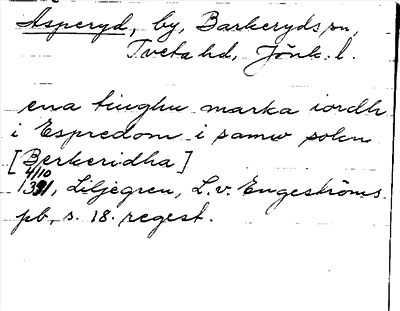 Asperyd, by, Barkeryds sn,
Tveta hd, Jönk. l.
ena tiughu marka iordh
i Espredom i samu sokn
[Berkeridha]
4/10
1391, Liljegren, L. v. Engeströms
pb, s. 18. regest.